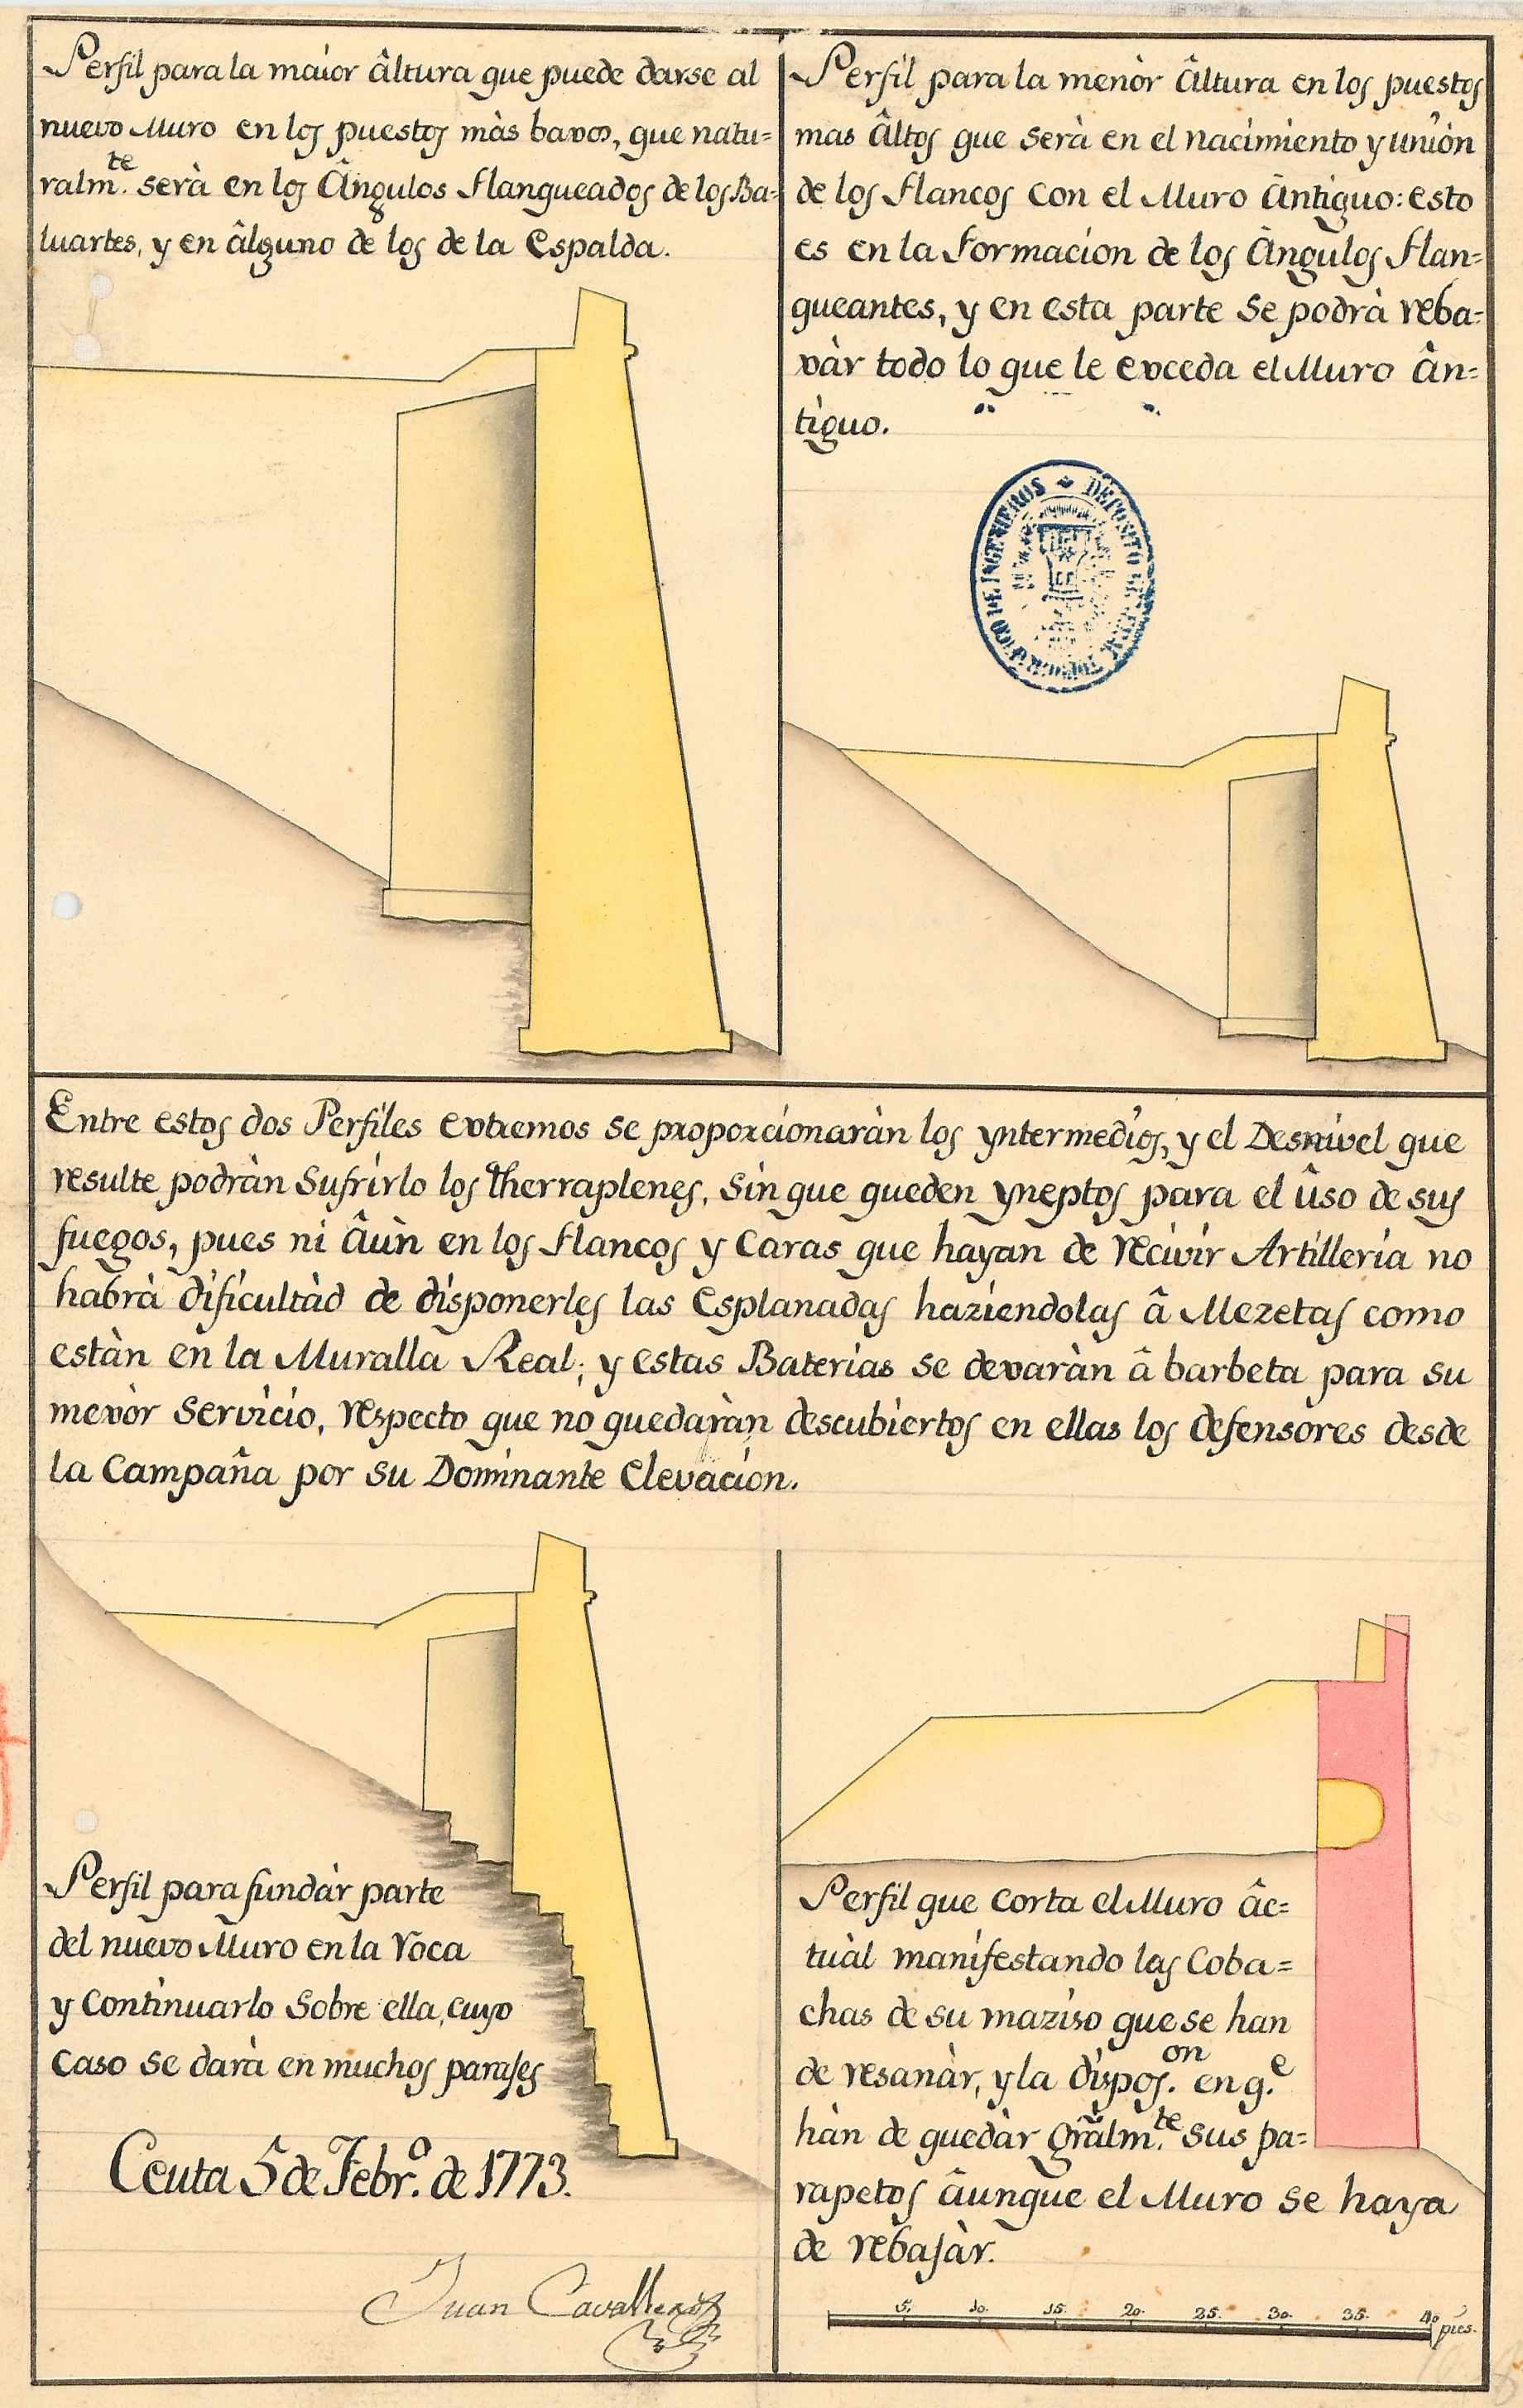 Perfil para la maior âltura que puede darse al
nuevo Muro en los puestos màs baxos, que natu=
ralm.te serà en los Ângulos flanqueados de los Ba=
luartes, y en âlguno de los de la Espalda.
Perfil para la menòr âltura en los puestos
mas âltos que serà en el nacimiento y unìon
de los flancos con el Muro ântiguo: esto
es en la formacion de los Ângulos flan=
queantes, y en esta parte se podrà reba=
xàr todo lo que le exceda el Muro ân=
tiguo.
DEPOSITO
DE INGENIEROS
Entre estos dos Perfiles extremos se proporcionaràn los yntermedios, y el Desnivel que
resulte podràn sufrirlo los Therraplenes, sin que queden yneptos para el ûso de sus
fuegos, pues ni âùn en los flancos y Caras que hayan de recivir Artilleria no
habrà dificultàd de disponerles las Esplanadas haziendolas â Mezetas como
estàn en la Muralla Real; y estas Baterias se dexaràn â barbeta para su
mexòr servicio, respecto que no quedaràn descubiertos en ellas los defensores desde
la Campaña por su Dominante Elevacion.
Perfil para fundàr parte
del nuevo Muro en la Roca
y Continuarlo sobre ella, cuyo
caso se darà en muchos parajes
Ceuta 5 de Febr.o de 1773.
Juan Cavallero
Perfil que corta el Muro âc=
tuàl manifestando las Coba=
chas de su maziso que se han
de resanàr, y la dispos.on en q.e
hàn de quedàr gràlm.te sus pa=
rapetos âunque el Muro se haya
de rebajàr.
5. 10. 15. 20. 25. 30. 35. 40 pies.